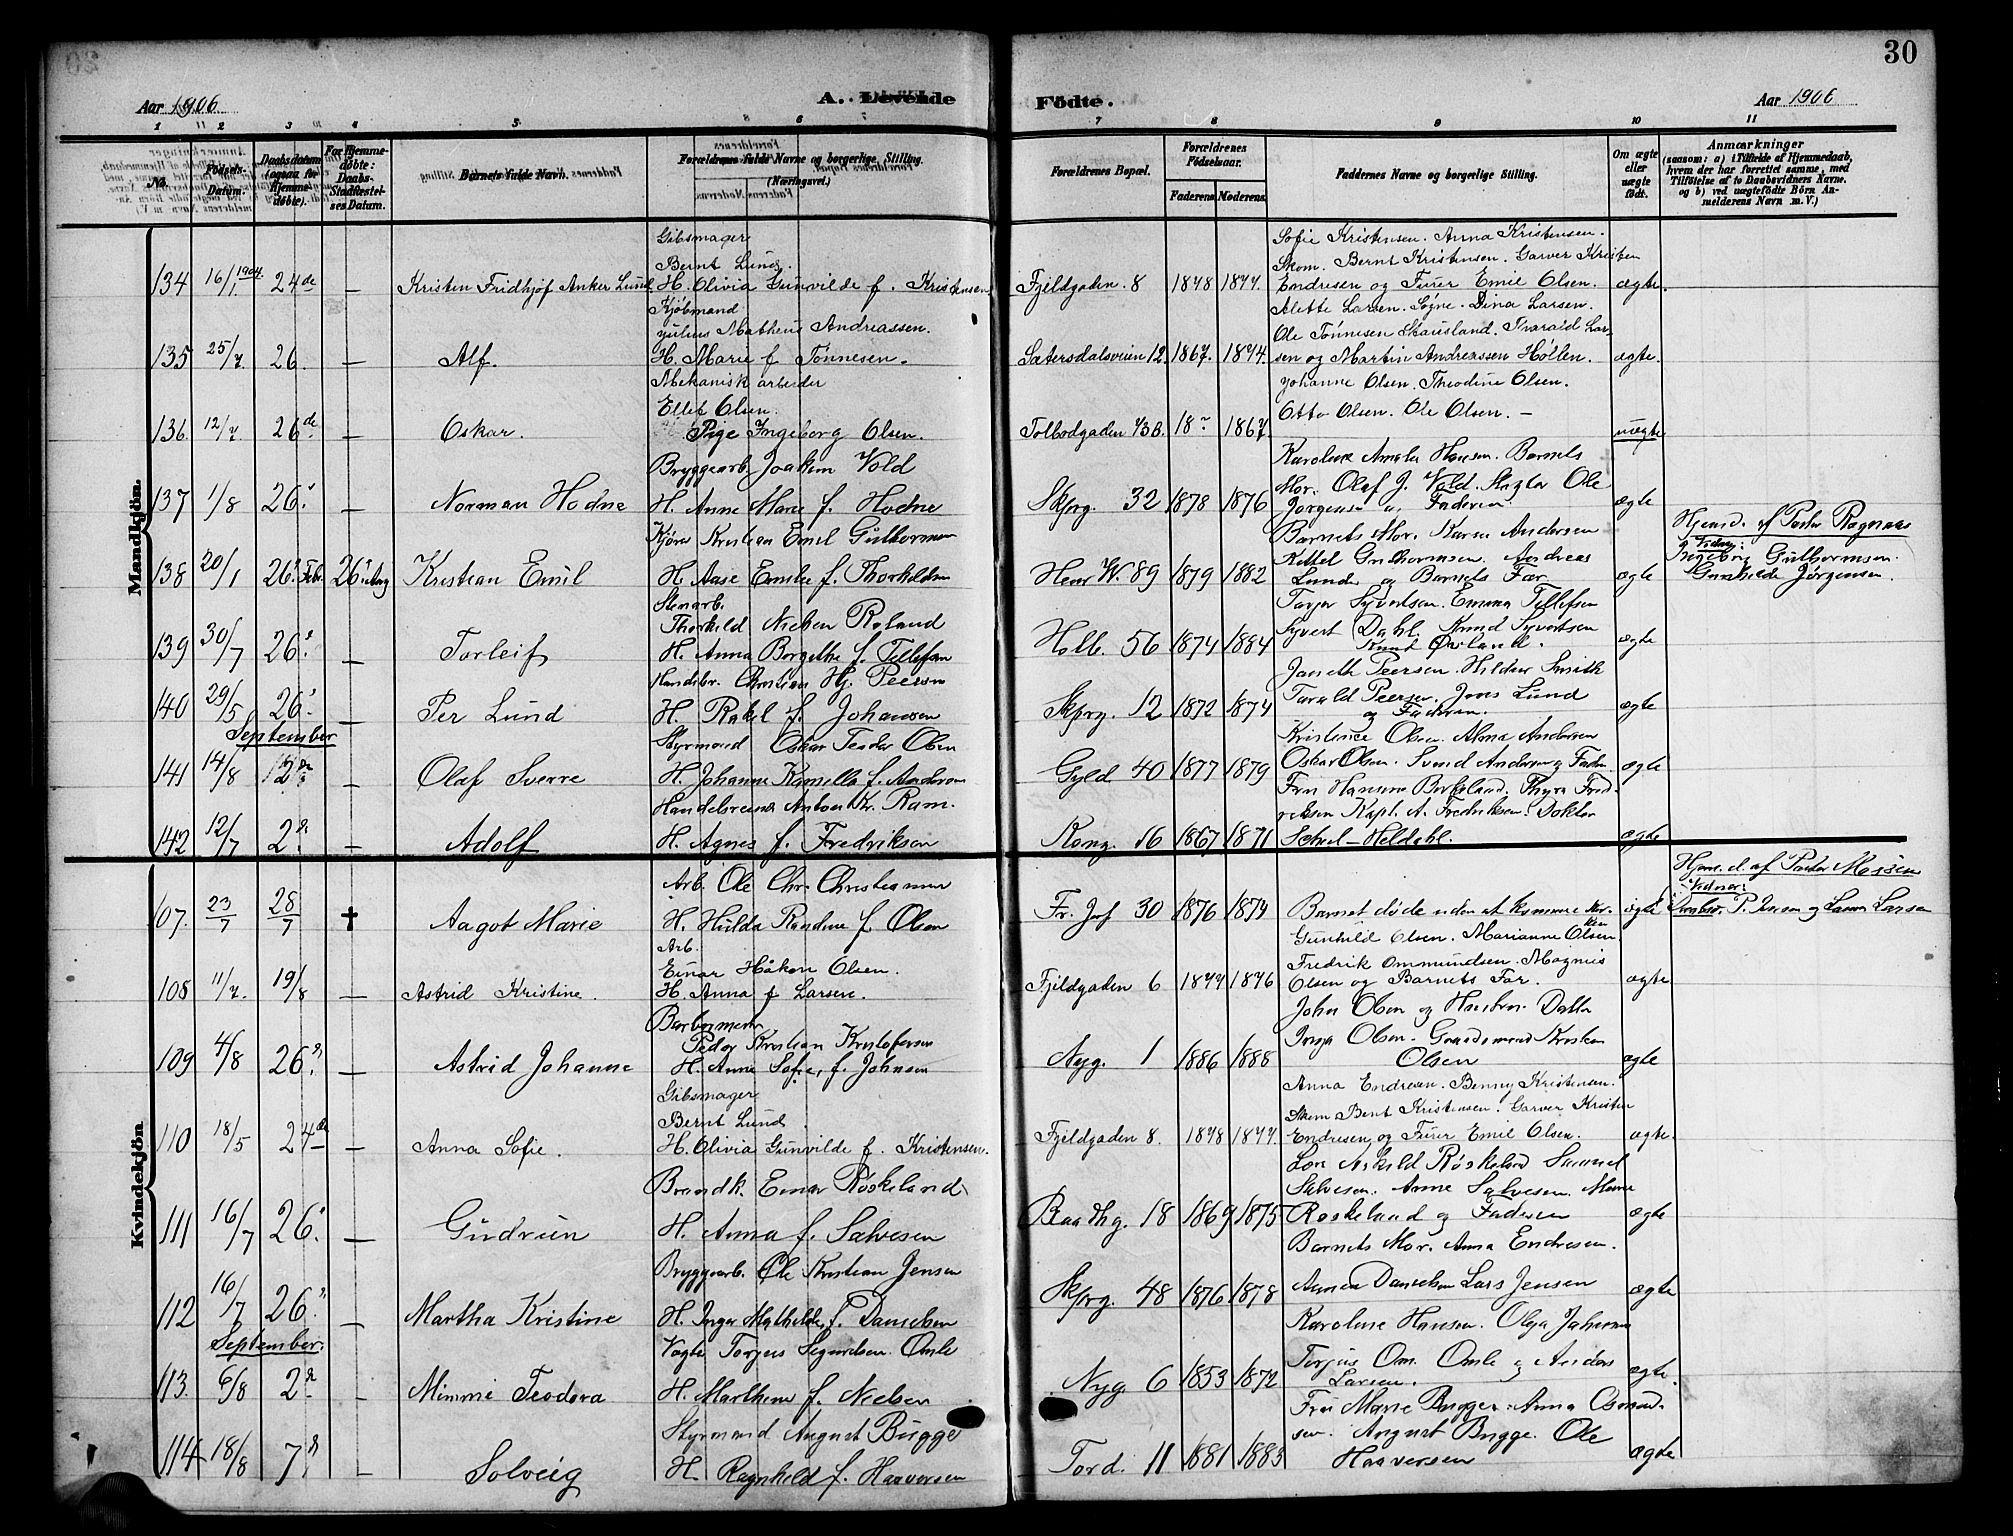 30
Aar 1906
A. Levende
Fødte.
Aar 1906
1 2 3 4 5 6 7 8 9 10 11
No.
Fødsels-Datum.
Daabsdatum (ogsaa for Hjemmedøbte).
For Hjemmedøbte: Daabs-Stadfæstelses Datum.
Barnets fulde Navn.
Forældrenes fulde Navne og borgerlige Stilling.
(Næringsvei.)
Forældrenes Bopæl.
Forældrenes Fødselsaar.
Faderens Moderens
Faddernes Navne og borgerlige Stilling.
Om ægte eller uægte født.
Anmærkninger
(saasom: a) i Tilfælde af Hjemmedaab, hvem der har forrettet samme, med Tilføielse af to Daabsvidners Navne. og b) ved uægtefødte Børn Anmelderens Navn m. V.)
Mandkjøn.
Gibsmager
Bernt Lund.
Sofie Kristensen. Anna Kristensen.
Skom. Bernt Kristensen. Garver Kristen
134 16/1 1904. 24de — Kristen Fridhjof Anker Lund H. Olivia Gunvilde f. Kristensen Fjeldgaden 8 1848 1877. Endresen og Furer Emil Olsen. ægte.
Kjøbmand
Julius Matheus Andreassen.
Alette Larsen. Søgne. Dina Larsen.
Ole Tønnesen Skarisland. Tharald Lar-
135 25/7. 26. — Alf. H. Marie f. Tønnesen. Sætersdalsveien 12. 1867. 1874. sen og Martin Andreassen Høllen. ægte.
Mekanisk arbeider
Ellef Olsen.
Johanne Olsen. Theodine Olsen.
136. 12/7 26de — Oskar. Pige Ingeborg Olsen. Tolbodgaden 73B. 18? 1867. Otto Olsen. Ole Olsen. — uægte
Bryggearb. Joakim Vold
Karoline Amalie Hansen. Barnets
Mor. Olaf J. Vold. Slagter Ole
137 1/8 26. — Norman Hodne H. Anne Marie f. Hodne Skprg. 32 1878 1876 Jørgensen og Faderen ægte
Kjøre Kristian Emil Guthormsen
Barnets Mor. Karen Andersen
Kittel Guthormsen. Andreas
Hjemd. af Pastor Ragnaas
Vidner:
138 20/1 26. Feb. 26. Aug Kristian Emil H. Aase Emilie f. Thorkildsen Henr W. 89 1879 1882 Lunde og Barnets Far ægte Guthormsen. Gunhilde Jørgensen.
Stenarb.
Thorkild Nielsen Roland
Tarjer Syvertsen. Emma Tellefsen
139 30/7 26. — Torleif H. Anna Borgethe f. Tellefsen Holb. 56 1874 1884 Syvert Dahl. Knud Syvertsen ægte
Handelsr. Christian Hj. Peersen
Janeth Peersen. Hilder Smith
140 29/5 26. — Per Lund H. Rakel f. Johansen Skprg. 12 1872 1874 Tarald Peersen. Jens Lund og Faderen. ægte
September
Styrmand Oskar Teodor Olsen
Kristense Olsen. Alma Andersen
141 14/8 2den — Olaf Sverre H. Johanne Kamilla f. Andersen Gyld 40 1877 1879 Oskar Olsen. Svend Andersen og Faderen ægte
Handelsreisende Anton Kr. Ram.
Fru Hansine Birkeland. Thyra Fred-
riksen Kapt. A. Fredriksen. Doktor
142 12/7 2. — Adolf H. Agnes f. Fredriksen Kong. 16 1867 1871 Scheel-Heldahl. ægte
Kvindekjøn
Arb. Ole Chr. Christiansen
Hjem. d. af Pastor Mossen
Vidner:
107. 23/7 28/7 ✝ Aagot Marie H. Hulda Randine f. Olsen Fr. Jof 30 1876 1874 Barnet døde uden at komme i Kirken ægte P. Jensen og Laura Larsen
Arb.
Einar Håkon Olsen.
Gunhild Olsen. Marianne Olsen.
Fredrik Ommundsen. Magnus
108 11/7. 19/8 — Astrid Kristine. H. Anna f Larsen. Fjeldgaden 6 1877 1876 Olsen og Barnets Far. ægte
Barbermester
Peder Kristian Kristofersen
John Olsen og Hustru. Datter
Inga Olsen. Gaardsmand Kristen
109 4/8 26. — Astrid Johanne H. Anne Sofie, f. Johnsen Nyg. 1 1886 1888 Olsen ægte
Gibsmager
Bernt Lund
Anna Endresen. Benny Kristensen.
Skom Bent Kristensen. Garver Kristen
110 18/5 24de — Anna Sofie. H. Olivia Gunvilde f. Kristensen. Fjeldgaden 8. 1848 1877. Endresen og Furer Emil Olsen. ægte.
Brandk. Einar Røskeland
Askild Røskeland Samuel
Salvesen. Anne Salvesen. Marie
111 16/7 26. — Gudrun H. Anna f. Salvesen Baadhg. 18 1869 1875 Røskeland og Faderen ægte
Bryggearb. Ole Kristian Jensen
Barnets Mor. Anna Endresen.
112 16/7 26. — Martha Kristine H. Inger Mathilde, f. Danielsen Skprg. 48 1876 1878 Danielsen Lars Jensen ægte
September.
Vogte Torjus Sigurdsen Omle
Karoline Hansen. Olga Johansen
113. 6/8 2. — Mimmi Teodora H. Marthine f. Nielsen Nyg. 6 1853 1872 Torjus Om. Omle og Anders Larsen. ægte.
Styrmand August Bugge
Fru Marie Bugge. Anna Osmund-
sen. August Bugge. Ole
114 18/8 7. — Solveig H. Ragnhild f. Haaversen Tord. 11 1881 1883 Haaversen ægte